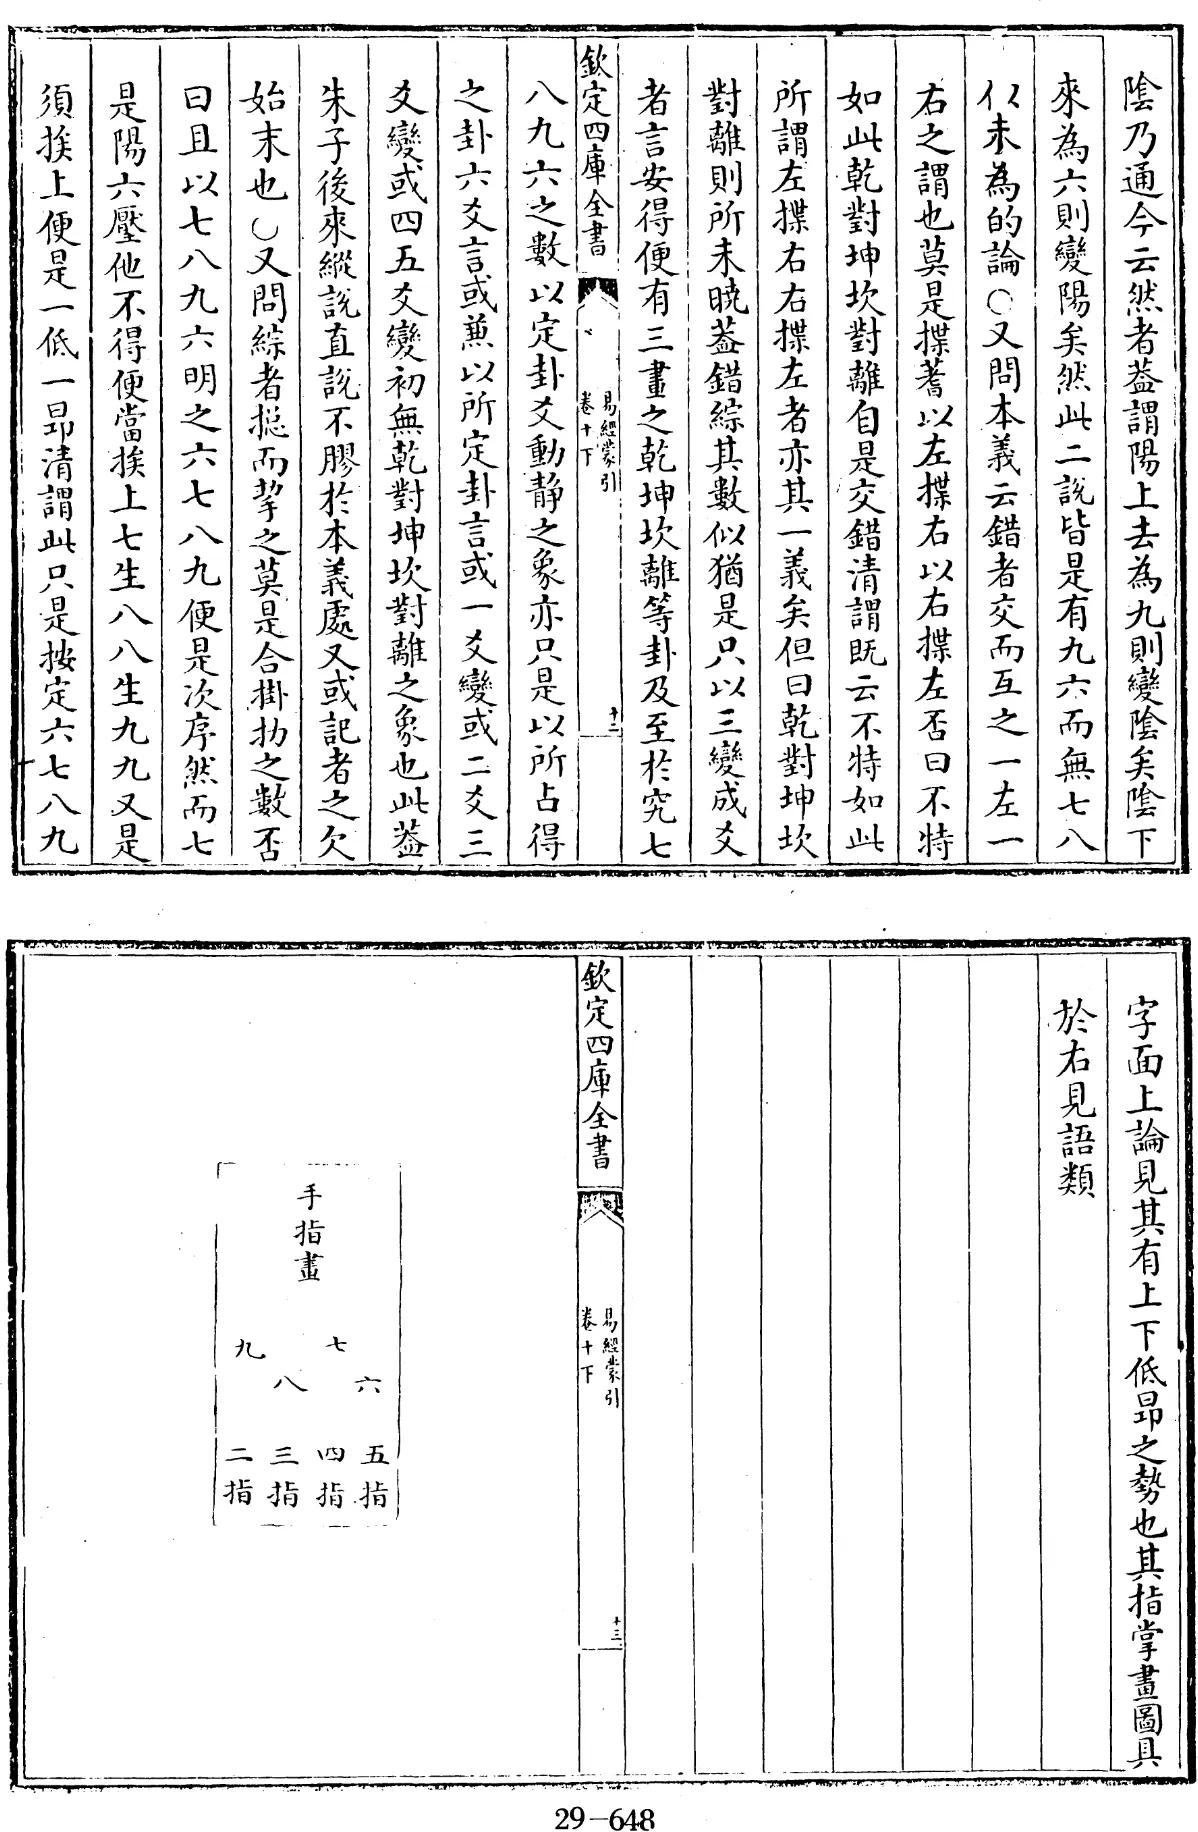 陰乃通今云然者蓋謂陽上去為九則變陰矣陰下
來為六則變陽矣然此二說皆是有九六而無七八
似未為的論○又問本義云錯者交而互之一左一
右之謂也莫是揲蓍以左揲右以右揲左否曰不特
如此乾對坤坎對離自是交錯清謂既云不特如此
所謂左揲右右揲左者亦其一義矣但曰乾對坤坎
對離則所未曉蓋錯綜其數似猶是只以三變成爻
者言安得便有三畫之乾坤坎離等卦及至於究七
欽定四庫全書
易經蒙引
卷十下
十二
八九六之數以定卦爻動靜之象亦只是以所占得
之卦六爻言或兼以所定卦言或一爻變或二爻三
爻變或四五爻變初無乾對坤坎對離之象也此蓋
朱子後來縱說直說不膠於本義處又或記者之欠
始末也○又問綜者摠而挈之莫是合掛扐之數否
曰且以七八九六明之六七八九便是次序然而七
是陽六壓他不得便當挨上七生八八生九九又是
須挨上便是一低一昂清謂此只是按定六七八九
字面上論見其有上下低昂之勢也其指掌畫圖具
於右見語類
欽定四庫全書
易經蒙引
卷十下
十三
手指畫
六
七
八
九
五指
四指
三指
二指
29-648